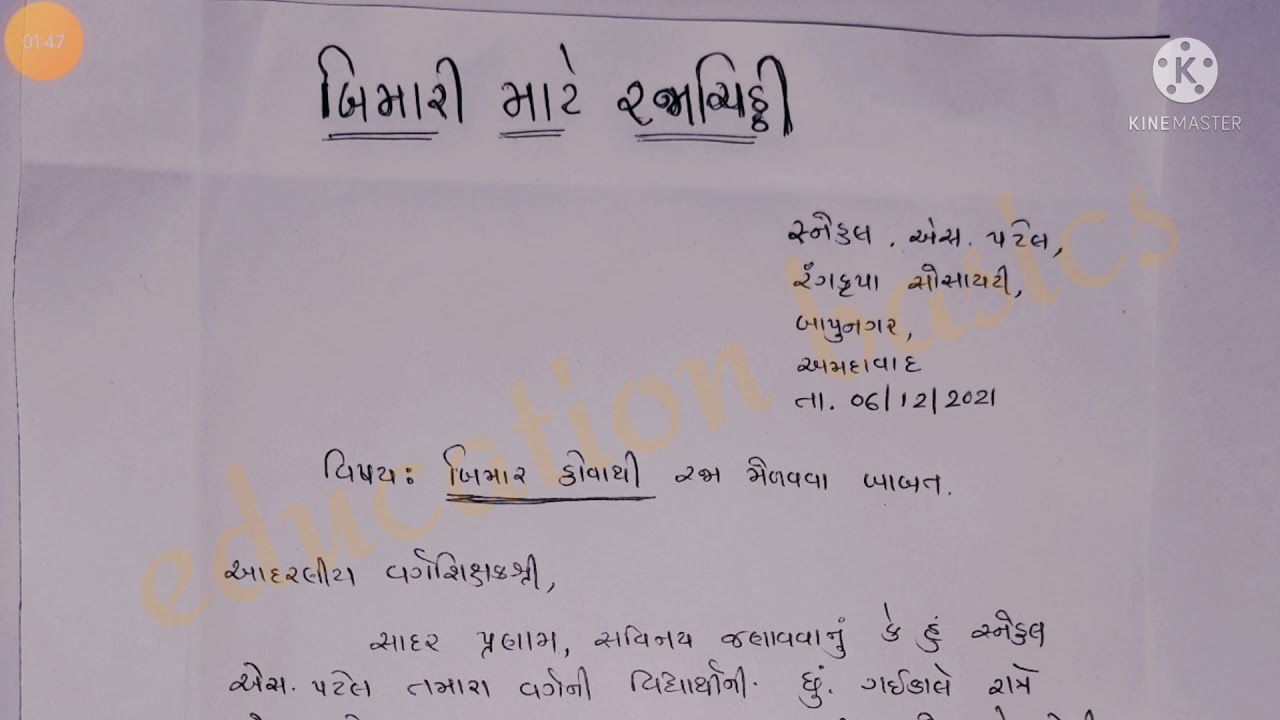 01:47
KINEMASTER
બિમારી માટે રજાચિઠ્ઠી
સ્નેહલ . એસ. પટેલ,
રંગકૃપા સોસાયટી,
બાપુનગર,
અમદાવાદ
તા. 06/12/2021
વિષય: બિમાર હોવાથી રજા મેળવવા બાબત.
આદરણીય વર્ગશિક્ષકશ્રી,
સાદર પ્રણામ, સવિનય જણાવવાનું કે હું સ્નેહલ
એસ. પટેલ તમારા વર્ગની વિદ્યાર્થીની છું. ગઈકાલે રાત્રે
education basics